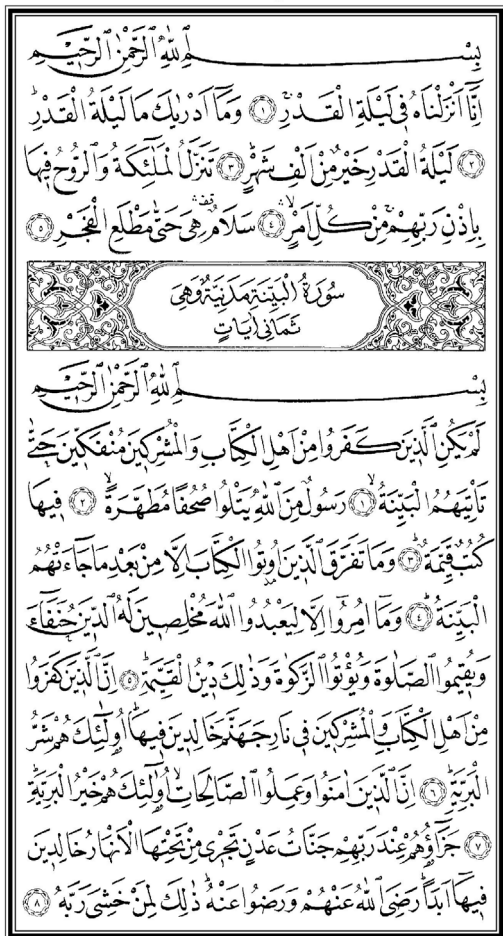 بِسْمِ اللّٰهِ الرَّحْمٰنِ الرَّحِيمِ
اِنَّٓا اَنْزَلْنَاهُ فِى لَيْلَةِ الْقَدْرِۚ ﴿١﴾ وَمَٓا اَدْرٰيكَ مَا لَيْلَةُ الْقَدْرِۜ
﴿٢﴾ لَيْلَةُ الْقَدْرِ خَيْرٌ مِنْ اَلْفِ شَهْرٍۜ ﴿٣﴾ تَنَزَّلُ الْمَلٰٓئِكَةُ وَالرُّوحُ فِيهَا
بِاِذْنِ رَبِّهِمْۚ مِنْ كُلِّ اَمْرٍۙۛ ﴿٤﴾ سَلَامٌ۠ۛ هِىَ حَتّٰى مَطْلَعِ الْفَجْرِ ﴿٥﴾
سُورَةُ الْبَيِّنَةِ مَدَنِيَّةٌ وَهِىَ
ثَمَانِى اٰيَاتٍ
بِسْمِ اللّٰهِ الرَّحْمٰنِ الرَّحِيمِ
لَمْ يَكُنِ الَّذِينَ كَفَرُوا مِنْ اَهْلِ الْكِتَابِ وَالْمُشْرِكِينَ مُنْفَكِّينَ حَتّٰى
تَاْتِيَهُمُ الْبَيِّنَةُۙ ﴿١﴾ رَسُولٌ مِنَ اللّٰهِ يَتْلُوا صُحُفًا مُطَهَّرَةًۙ ﴿٢﴾ فِيهَا
كُتُبٌ قَيِّمَةٌۜ ﴿٣﴾ وَمَا تَفَرَّقَ الَّذِينَ اُوتُوا الْكِتَابَ اِلَّا مِنْ بَعْدِ مَا جَٓاءَتْهُمُ
الْبَيِّنَةُۜ ﴿٤﴾ وَمَٓا اُمِرُٓوا اِلَّا لِيَعْبُدُوا اللّٰهَ مُخْلِصِينَ لَهُ الدِّينَ حُنَفَٓاءَ
وَيُقِيمُوا الصَّلٰوةَ وَيُؤْتُوا الزَّكٰوةَ وَذٰلِكَ دِينُ الْقَيِّمَةِۜ ﴿٥﴾ اِنَّ الَّذِينَ كَفَرُوا
مِنْ اَهْلِ الْكِتَابِ وَالْمُشْرِكِينَ فِى نَارِ جَهَنَّمَ خَالِدِينَ فِيهَاۜ اُو۬لٰٓئِكَ هُمْ شَرُّ
الْبَرِيَّةِۜ ﴿٦﴾ اِنَّ الَّذِينَ اٰمَنُوا وَعَمِلُوا الصَّالِحَاتِۙ اُو۬لٰٓئِكَ هُمْ خَيْرُ الْبَرِيَّةِۜ
﴿٧﴾ جَزَٓاؤُ۬هُمْ عِنْدَ رَبِّهِمْ جَنَّاتُ عَدْنٍ تَجْرِى مِنْ تَحْتِهَا الْاَنْهَارُ خَالِدِينَ
فِيهَٓا اَبَدًاۜ رَضِىَ اللّٰهُ عَنْهُمْ وَرَضُوا عَنْهُۜ ذٰلِكَ لِمَنْ خَشِىَ رَبَّهُ ﴿٨﴾